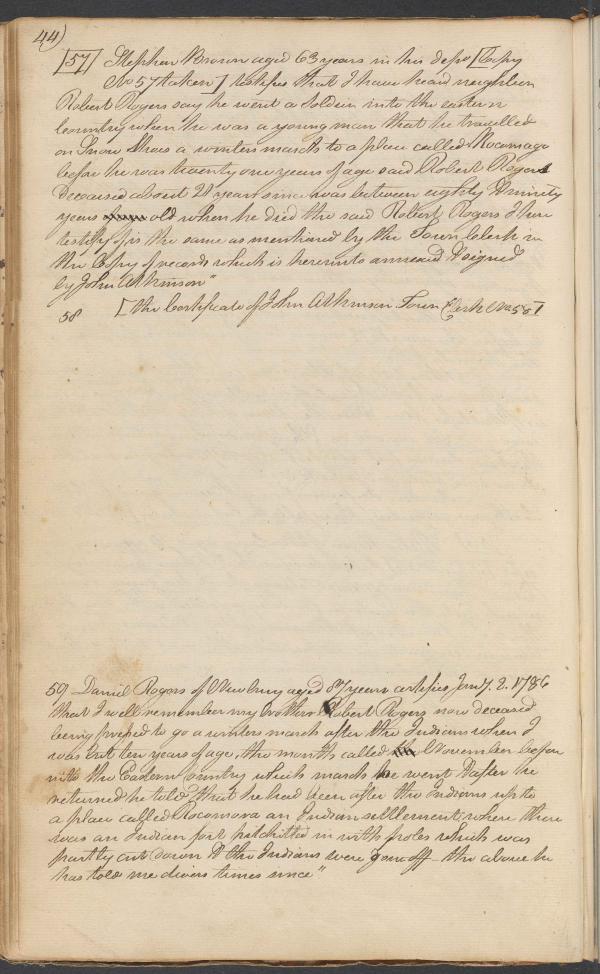 44)
[57] Stephen Brown aged 63 years in his depo [Copy
No 57 taken] testifies that I have heard neighbour
Robert Rogers say he went a Soldier into the eastern
Country when he was a young man that he travelled
on Snow Shoes a winters march to a place called Rocomago
before he was twenty one years of age said Robert Rogers
Deceased about 21 years since was between eighty & ninety
years old when he died the said Robert Rogers I here
testify of is the same as mentioned by the Town Clerk in
the Copy of records which is hereunto annexed & signed
by John Atkinson"
58 [the Certificate of John Atkinson Town Clerk No 58]
59 Daniel Rogers of Newbury aged 87 years certifies Jany. 2. 1786
that I well remember my brother Robert Rogers now deceased
being pressed to go a winters march after the Indians when I
was but ten years of age, the month called November before
into the Eastern Country which march he went & after he
returned he told that he had been after the Indians up to
a place called Rocomora an Indian settlement, where there
was an Indian fort picketted in with poles which was
partly cut down & the Indians were gone off – the above he
has told me divers times since"